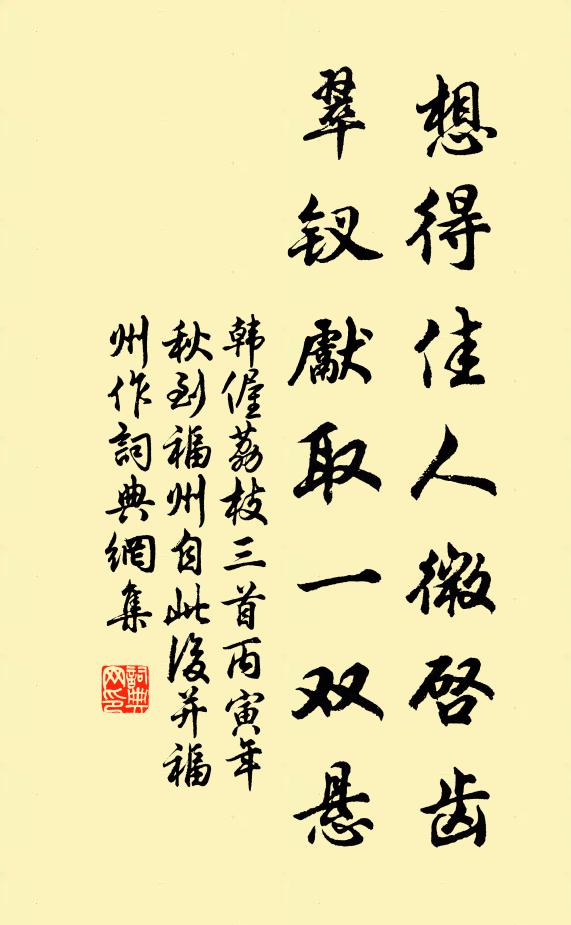 想得佳人微啓齒
翠钗獻取一双悬
韩偓荔枝三首丙寅年
秋到福州自此後并福
州作詞典網集
詞典网印